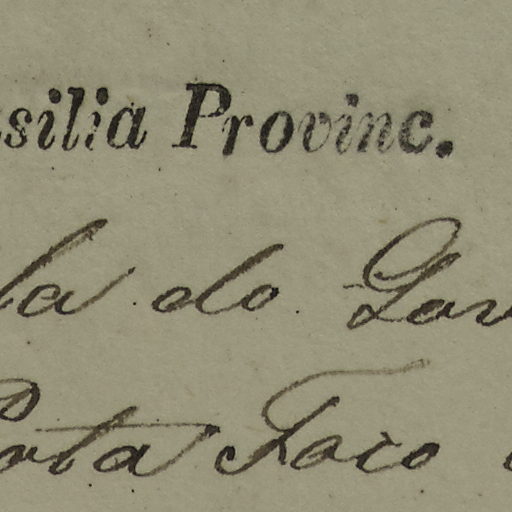 silia Provinc.
la do Lav
Porta Foco